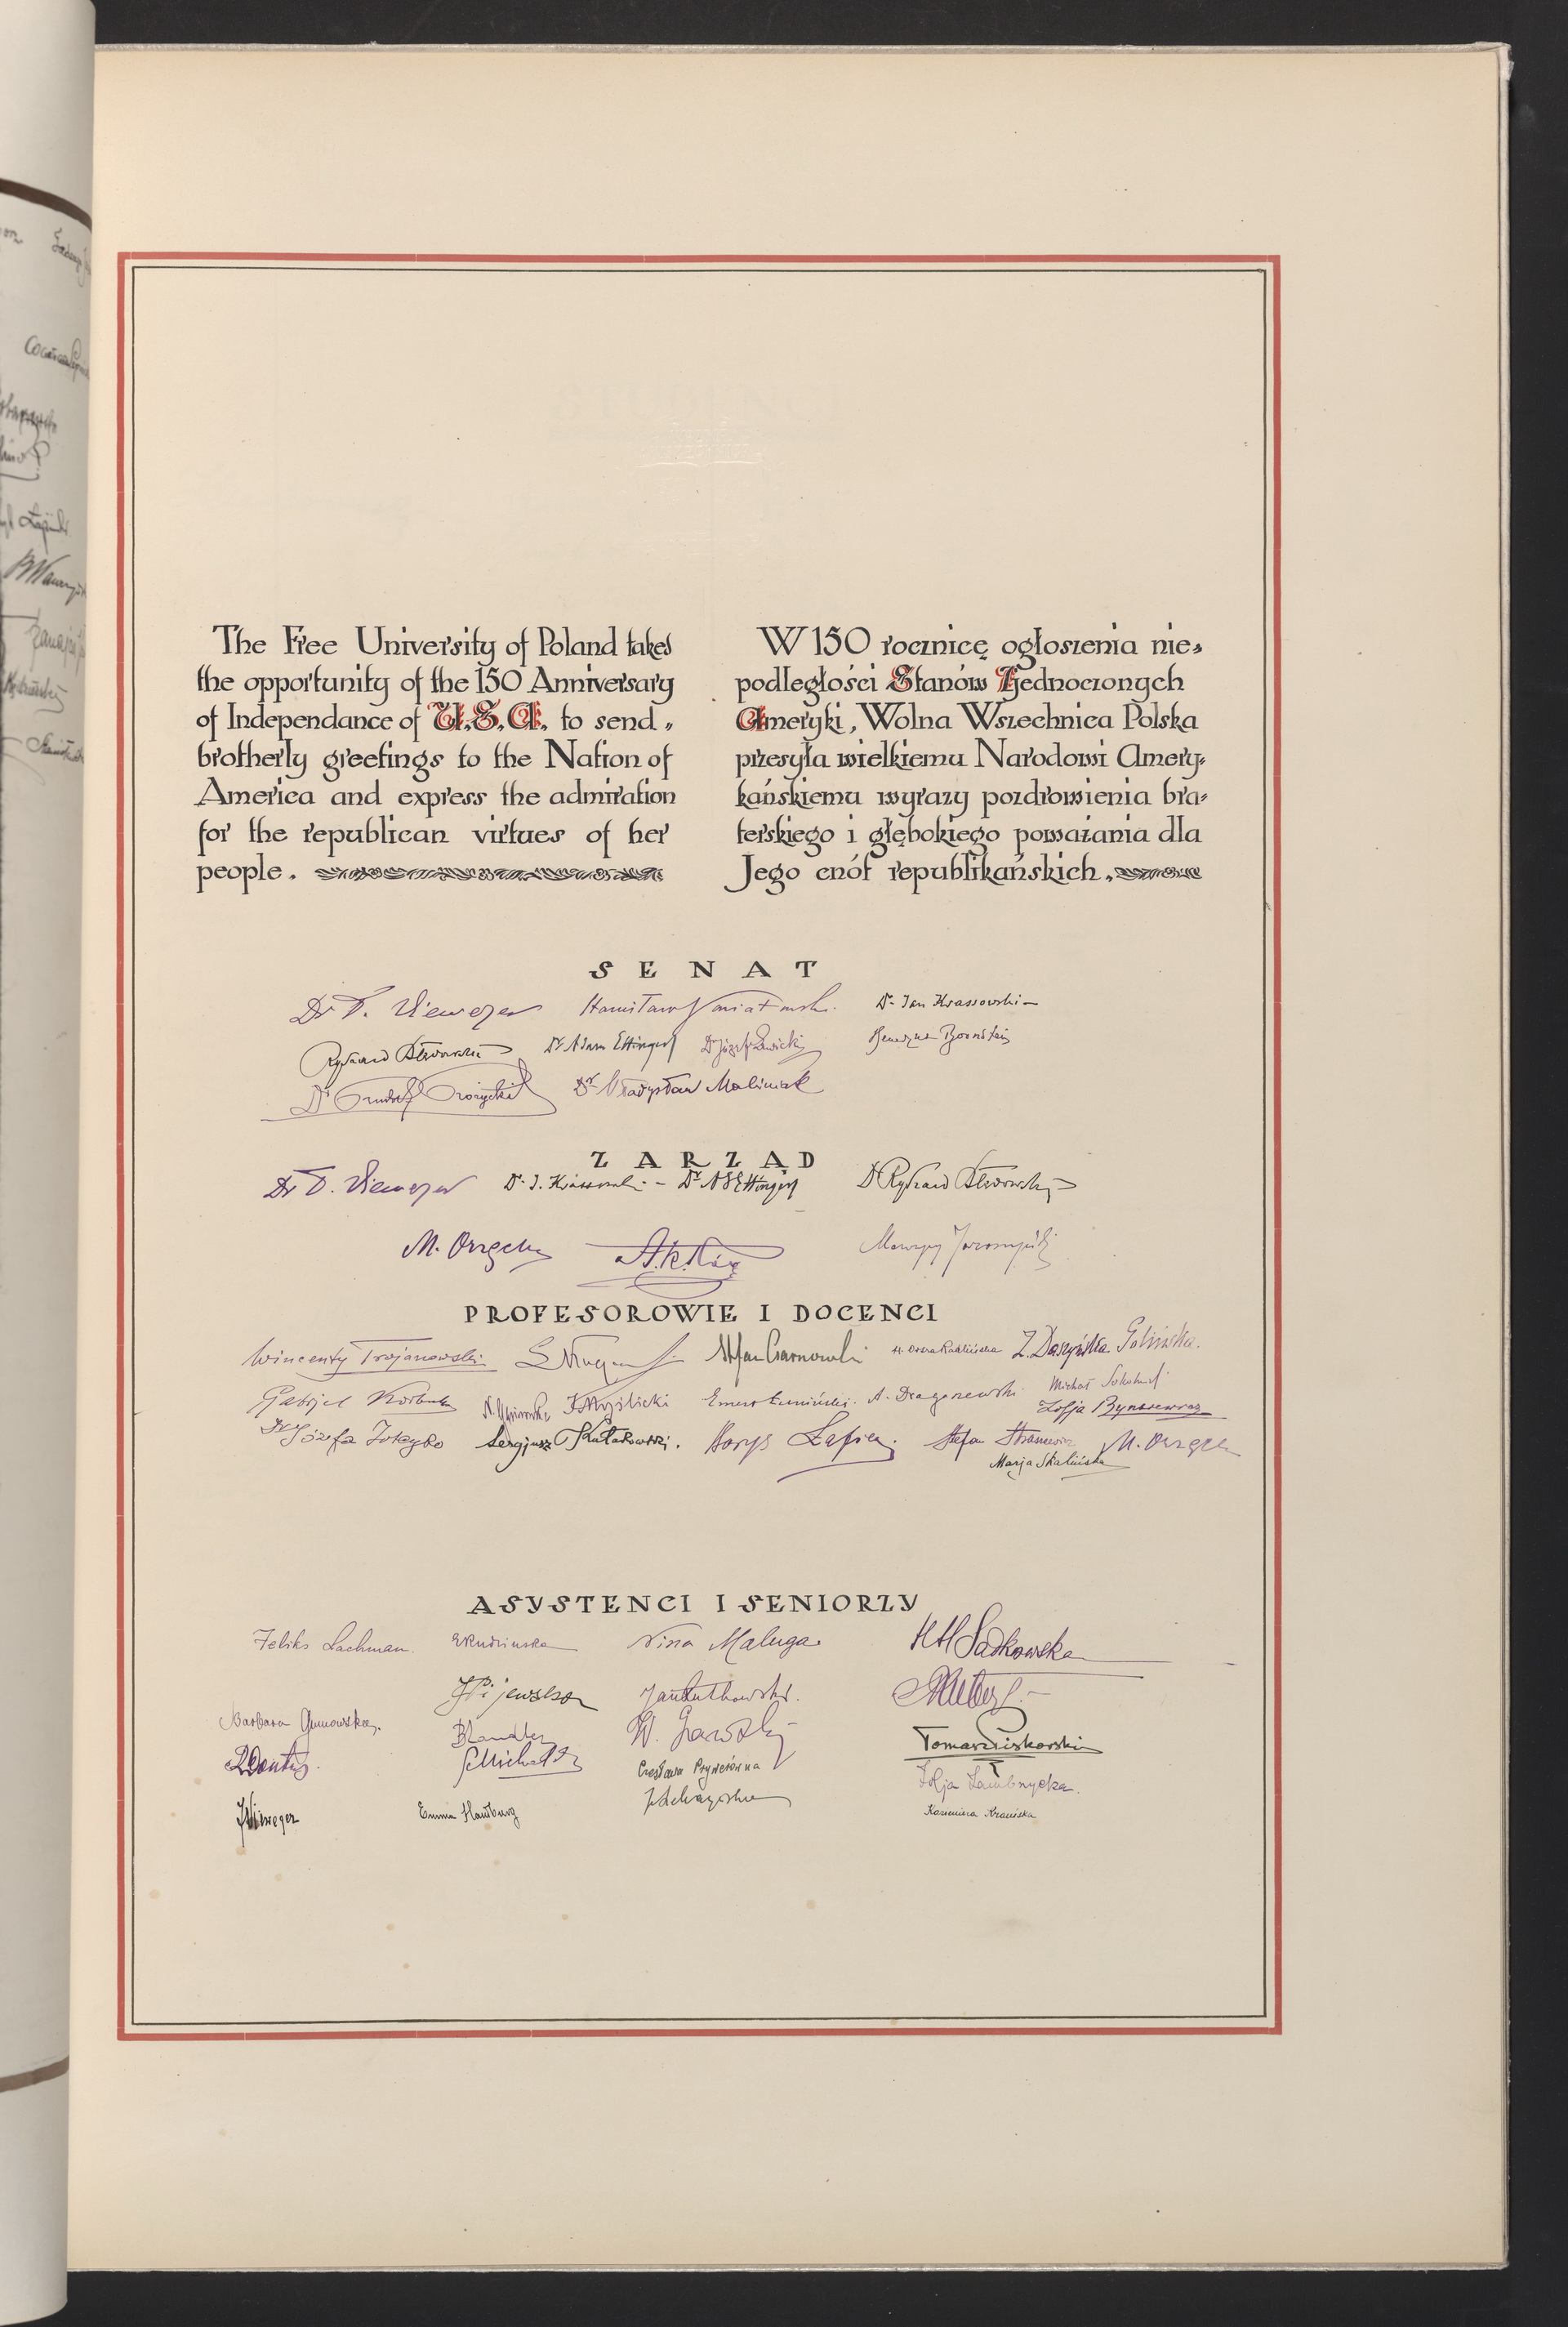 The Free University of Poland takes
the opportunity of the 150 Anniversary
of Independance of U.S.A. to send
brotherly greetings to the Nation of
America and express the admiration
for the republican virtues of her
people.
W 150 rocznicę ogłoszenia nie-
podległości Stanów Zjednoczonych
Ameryki, Wolna Wszechnica Polska
przesyła wielkiemu Narodowi Amery-
kańskiemu wyrazy pozdrowienia bra-
terskiego i głębokiego poważania dla
Jego cnót republikańskich.
SENAT
Dr T. Vieweger Stanisław Poniatowski Dr Jan Krassowski
Ryszard Dr Adam Ettinger Dr Józef Benedykt Bornstein
Dr Dr Władysław Maliniak
ZARZĄD
Dr T. Vieweger Dr J. Krassowski Dr A Ettinger Dr Ryszard
M. Orzęcki
PROFESOROWIE I DOCENCI
Wincenty Trojanowski Stefan Czarnowski H. Orsza Radlińska Z. Daszyńska Golińska.
Gabrjel Korbut Myślicki Ernest Łuniński. A. Drogoszewski Michał Sokolnicki
Zofja
Dr Józefa Joteyko Sergjusz Kułakowski. Borys Łapicki Stefan Straszewicz M. Orzęcki
Marja Skalińska
ASYSTENCI I SENIORZY
Feliks Lachman. Nina Maluga HM Sadkowska
Jan Rutkowski.
Barbara W.
Tomasz Piskorski
Czesława Zofja
J Vieweger Emma Hamburg Kazimiera